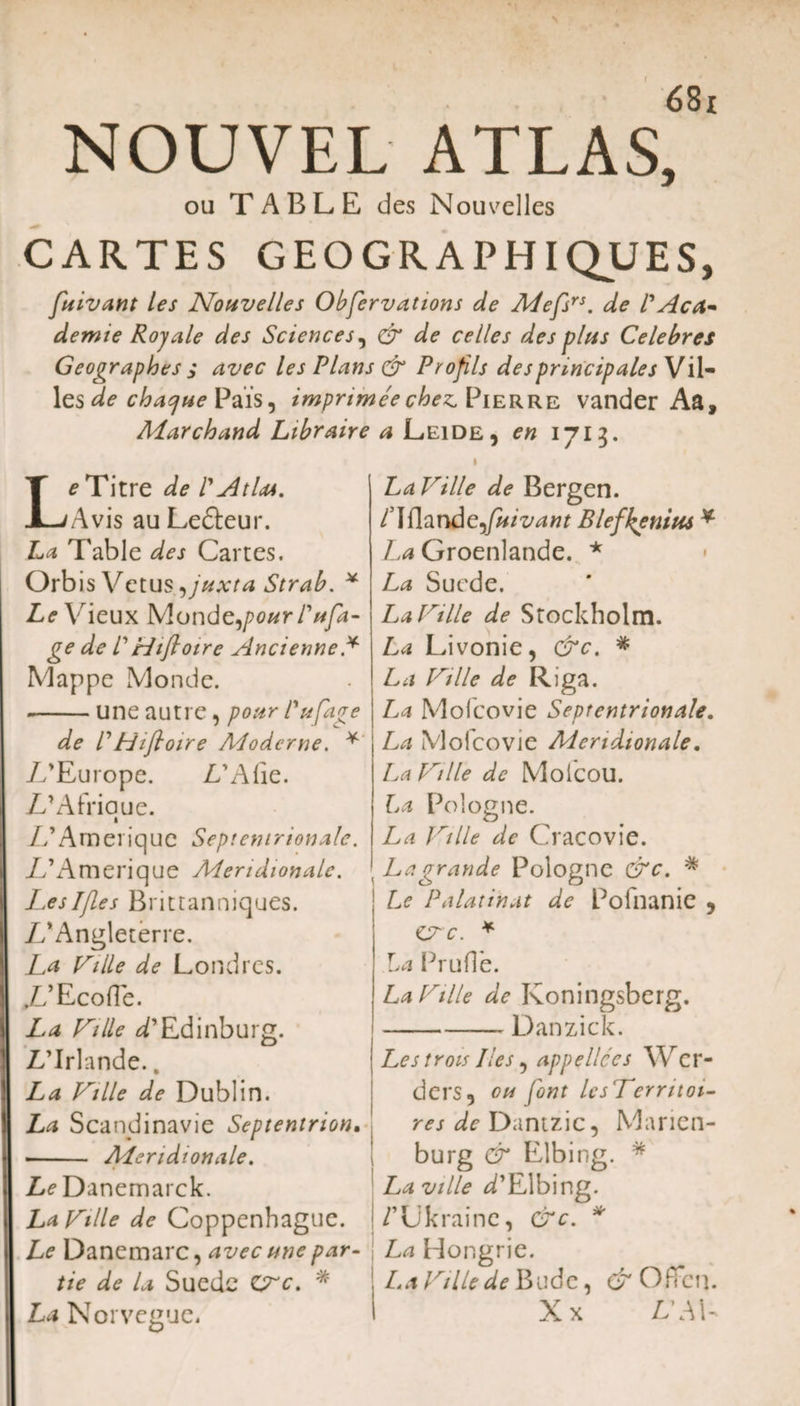 681
NOUVEL ATLAS,
ou TABLE des Nouvelles
CARTES GEOGRAPHIQUES,
ſuivant les Nouvelles Obſervations de Meſsrs. de l'Aca-
demie Royale des Sciences, & de celles des plus Celebres
Geographes; avec les Plans & Profils des principales Vil-
les de chaque Païs, imprimée chez PIERRE vander Aa,
Marchand Libraire a LEIDE, en 1713.
Le Titre de l'Atlas.
Avis au Lecteur.
La Table des Cartes.
Orbis Vetus, juxta Strab. *
Le Vieux Monde, pour l'uſa-
ge de l'Hiſtoire Ancienne. *
Mappe Monde.
—— une autre, pour l'uſage
de l'Hiſtoire Moderne. *
L'Europe. L'Aſie.
L'Afrique.
L'Amerique Septentrionale.
L'Amerique Meridionale.
Les Iſles Brittanniques.
L'Angleterre.
La Ville de Londres.
L'Ecoſſe.
La Ville d'Edinburg.
L'Irlande.
La Ville de Dublin.
La Scandinavie Septentrion.
—— Meridionale.
Le Danemarck.
La Ville de Coppenhague.
Le Danemarc, avec une par-
tie de la Suede &c. *
La Norvegue.
La Ville de Bergen.
l'Iſlande, ſuivant Blefkenius *
La Groenlande. *
La Suede.
La Ville de Stockholm.
La Livonie, &c. *
La Ville de Riga.
La Moſcovie Septentrionale.
La Moſcovie Meridionale.
La Ville de Moſcou.
La Pologne.
La Ville de Cracovie.
La grande Pologne &c. *
Le Palatinat de Poſnanie,
&c. *
La Pruſſe.
La Ville de Koningsberg.
———— Danzick.
Les trois Iles, appellées Wer-
ders, ou ſont les Territoi-
res de Dantzic, Marien-
burg & Elbing. *
La ville d'Elbing.
l'Ukraine, &c. *
La Hongrie.
La Ville de Bude, & Offen.
Xx L'Al-